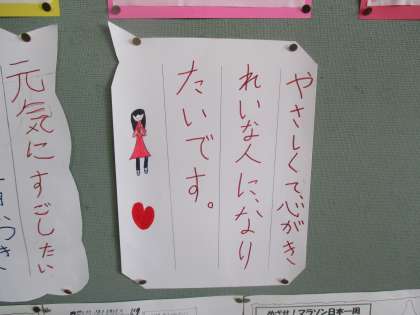 やさしくて、心がき
れいな人に、なり
たいです。
元気にすごしたい
めざせ！マラソン日本一周